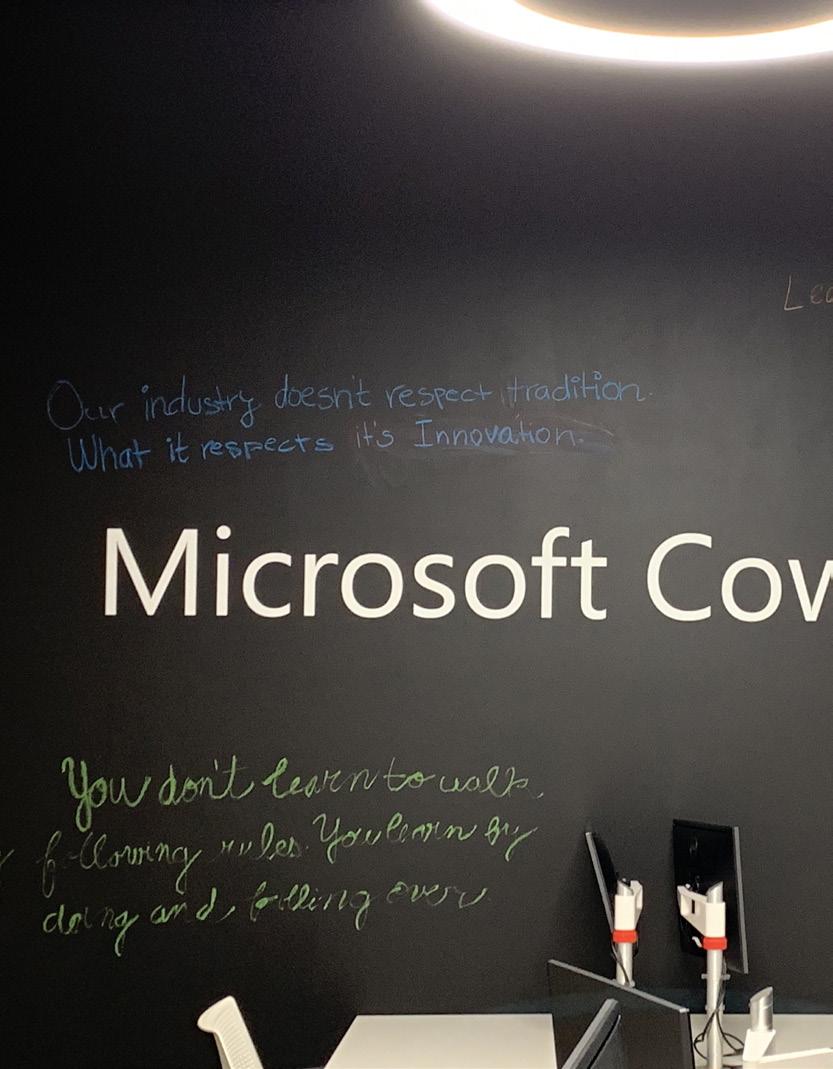 Our industry doesn't respect tradition.
What it respects it's Innovation.
Microsoft Cow
You don't learn to walk
following rules. You learn by
doing and, falling over